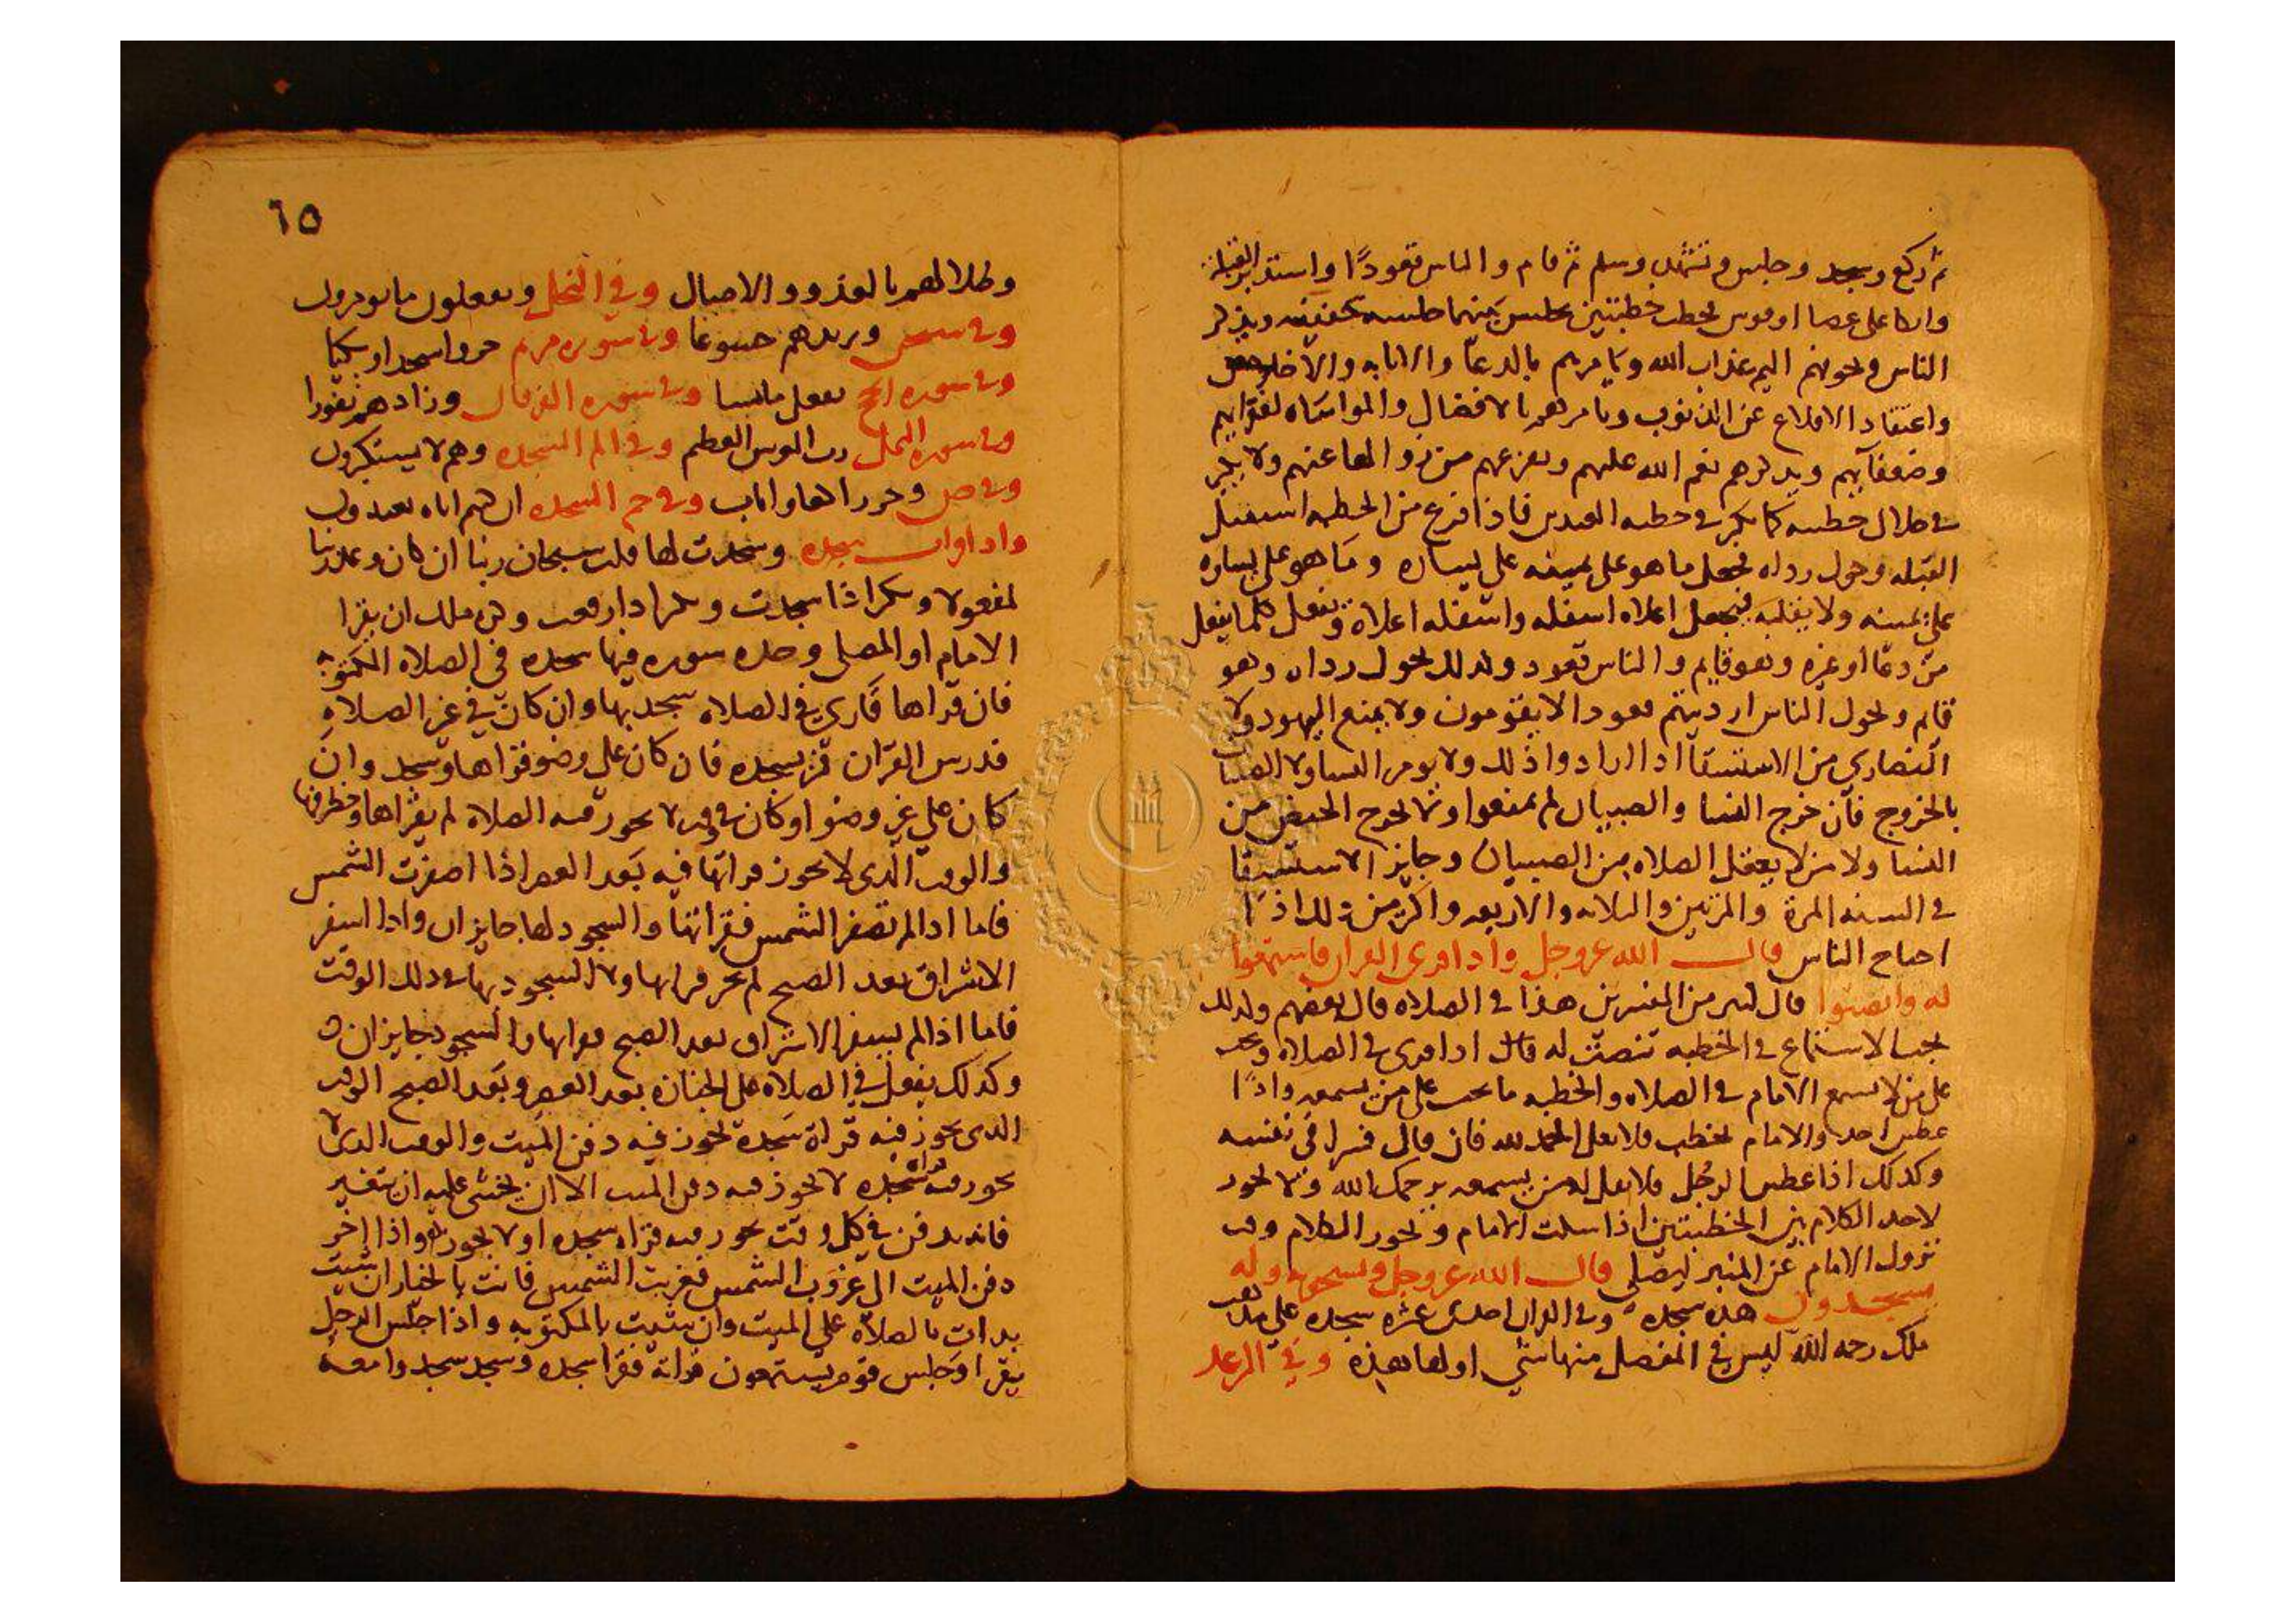 ثم ركع وسجد وجلس وتشهد وسلم ثم قام والناس قعودًا واستدبر القبلة
واتكا على عصا او قوس يخطب خطبتين يجلس بينهما جلسه خفيفه ويذكر
الناس ويخوفهم اليم عذاب الله ويامرهم بالدعا والانابه والاخلاص
واعتقاد الاقلاع عن الذنوب ويامرهم بالافضال والمواساه لفقرايهم
وضعفايهم ويذكرهم نعم الله عليهم ويفزعهم من زوالها عنهم ولا يكبر
في خلال خطبته كما يكبر في خطبه العيدين فاذا فرغ من الخطبه استقبل
القبله وحول رداه فجعل ما هو على يمينه على يساره وما هو على يساره
على يمينه ولا يقلبه فيجعل اعلاه اسفله واسفله اعلاه ويفعل كلما يفعل
من دعا او غيره وهو قايم والناس قعود وكذلك يحول رداه وهو
قايم ويحول الناس ارديتهم قعودا لا يقومون ولا يمنع اليهود ولا
النصاري من الاستسقا اذا ارادوا ذلك ولا يومر النسا ولا الصبيا
بالخروج فان خرج النسا والصبيان لم يمنعوا ولا يخرج الحيض من
النسا ولا من لا يعقل الصلاه من الصبيان وجايز الاستسقا
في السنه المرة والمرتين والثلاثه والاربعه واكثر من ذلك اذا
احتاج الناس قال الله عز وجل واذا قرى القران فاستمعوا
له وانصتوا قال كثير من المفسرين هذا في الصلاه قال بعضهم وكذلك
يجب الاستماع في الخطبه تنصت له قال اذا قرى في الصلاه ويجب
على من لا يسمع الامام في الصلاه والخطبه ما يجب على من يسمعه واذا
عطس احد والامام يخطب فلا يقل الحمد لله فان قال فسرا في نفسه
وكذلك اذا عطس الرجل فلا يقل له من يسمعه يرحمك الله ولا يجوز
لاحد الكلام بين الخطبتين اذا سكت الامام ويجوز الكلام وقت
نزول الامام عن المنبر ليصلي قال الله عز وجل ويسبحونه وله
يسجدون هذه سجده وفي القران احدى عشره سجده على مذهب
ملك رحمه الله ليس في المفصل منها شي اولها هذه وفي الرعد
٦٥
وظلالهم بالغدو والاصال وفي النحل ويفعلون ما يومرون
وفي سبحن ويزيدهم خشوعا وفي سوره مريم خروا سجدا وبكيا
وفي سوره الحج يفعل ما يشا وفي سوره الفرقان وزادهم نفورا
وفي سوره النمل رب العرش العظيم وفي الم السجده وهم لا يستكبرون
وفي ص وخر راكعا واناب وفي حم السجده ان كنتم اياه تعبدون
واذا قرات سجده وسجدت لها قلت سبحان ربنا ان كان وعد ربنا
لمفعولا وتكبر اذا سجدت وتكبر اذا رفعت وكره ملك ان يقرا
الامام او المصلي وحده سوره فيها سجده في الصلاه المكتوبه
فان قراها قاري في الصلاه سجد بها وان كان في غير الصلاه
فدرس القران فمر بسجده فان كان على وضو قراها وسجد وان
كان على غير وضو او كان في وقت لا يجوز فيه الصلاه لم يقراها وخطرفها
والوقت الذي لا يجوز قراتها فيه بعد العصر اذا اصفرت الشمس
فاما اذا لم تصفر الشمس فقراتها والسجود لها جايزان واذا اسفر
الاشراق بعد الصبح لم يجز قراتها ولا السجود بها في ذلك الوقت
فاما اذا لم يسفر الاشراق بعد الصبح فقراتها والسجود جايزان
وكذلك يفعل في الصلاه على الجنازه بعد العصر وبعد الصبح الوقت
الذي يجوز فيه قراة سجدة يجوز فيه دفن الميت والوقت الذي لا
يجوز فيه قراة سجده لا يجوز فيه دفن الميت الا ان يخشى عليه ان يتغير
فانه يدفن في كل وقت يجوز فيه قراه سجده او لا يجوز واذا اخر
دفن الميت الى غروب الشمس فغربت الشمس فانت بالخيار ان شيت
بدات بالصلاه على الميت وان شيت بالمكتوبه واذا جلس الرجل
يقرا وجلس قوم يستمعون قراته فقرا سجده وسجد سجدوا معه